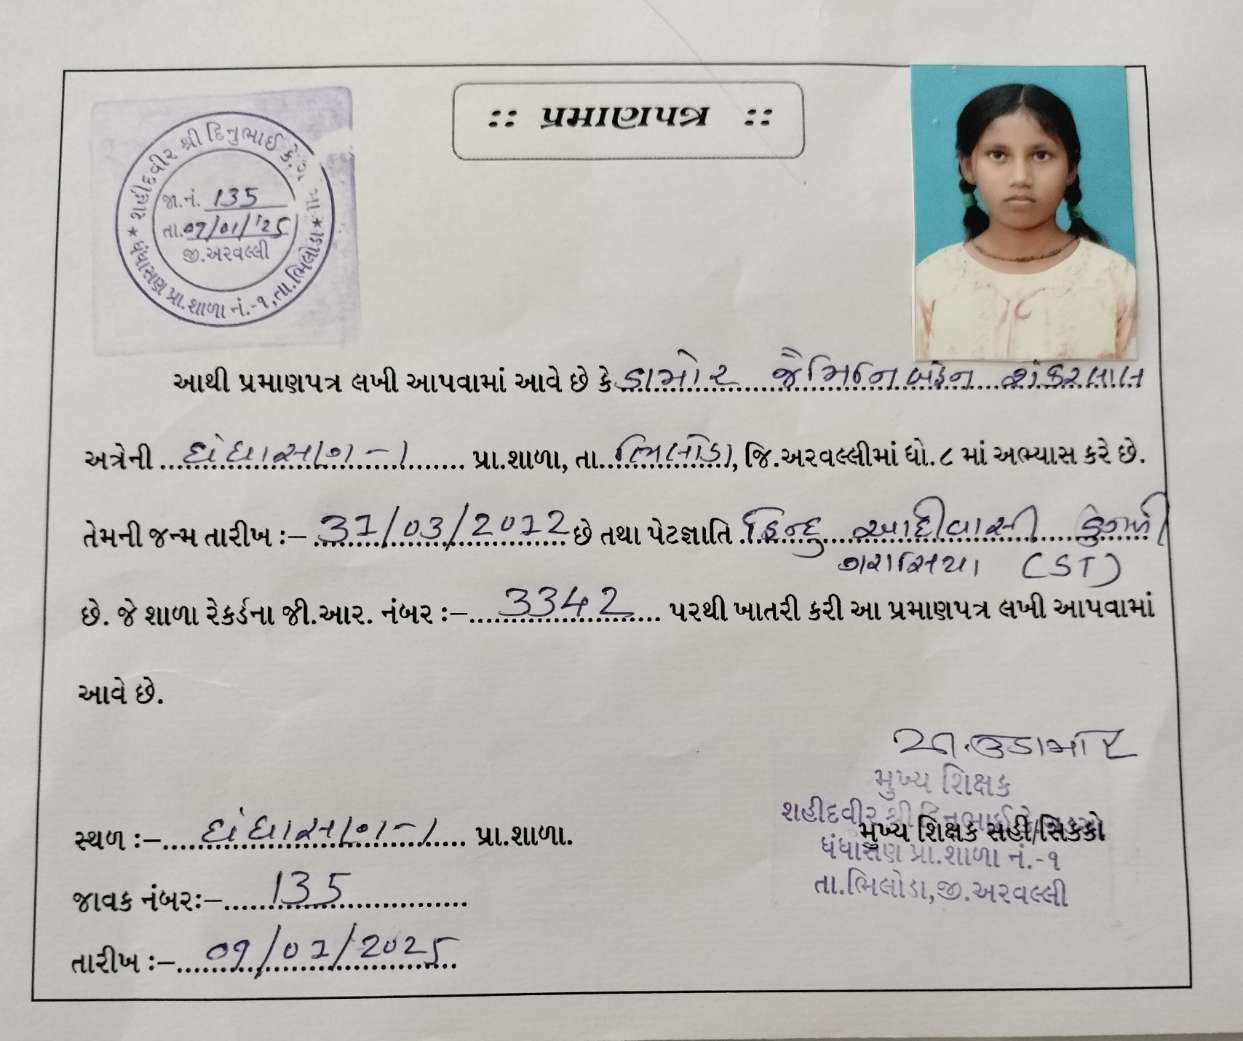 :: પ્રમાણપત્ર ::
શહીદવીર શ્રી દિનુભાઈ
જા.નં. 135
તા. 09/01/'25
જી.અરવલ્લી
ધંધાસણ પ્રા.શાળા નં.-૧, તા.ભિલોડા
આથી પ્રમાણપત્ર લખી આપવામાં આવે છે કે ડામોર જૈમિનિબહેન શંકરલાલ
અત્રેની ધંધાસણ-1 પ્રા.શાળા, તા. ભિલોડા, જિ.અરવલ્લીમાં ધો.૮ માં અભ્યાસ કરે છે.
તેમની જન્મ તારીખ :– 31/03/2012 છે તથા પેટજ્ઞાતિ હિન્દુ આદીવાસી ડુંગરી
ગરાસિયા (ST)
છે. જે શાળા રેકર્ડના જી.આર. નંબર :– 3342 પરથી ખાતરી કરી આ પ્રમાણપત્ર લખી આપવામાં
આવે છે.
મુખ્ય શિક્ષક
શહીદવીર શ્રી દિનુભાઈ
મુખ્ય શિક્ષક સહી/સિક્કો
ધંધાસણ પ્રા.શાળા નં.-૧
તા.ભિલોડા,જી.અરવલ્લી
સ્થળ :– ધંધાસણ-1 પ્રા.શાળા.
જાવક નંબર:– 135
તારીખ :– 09/01/2025